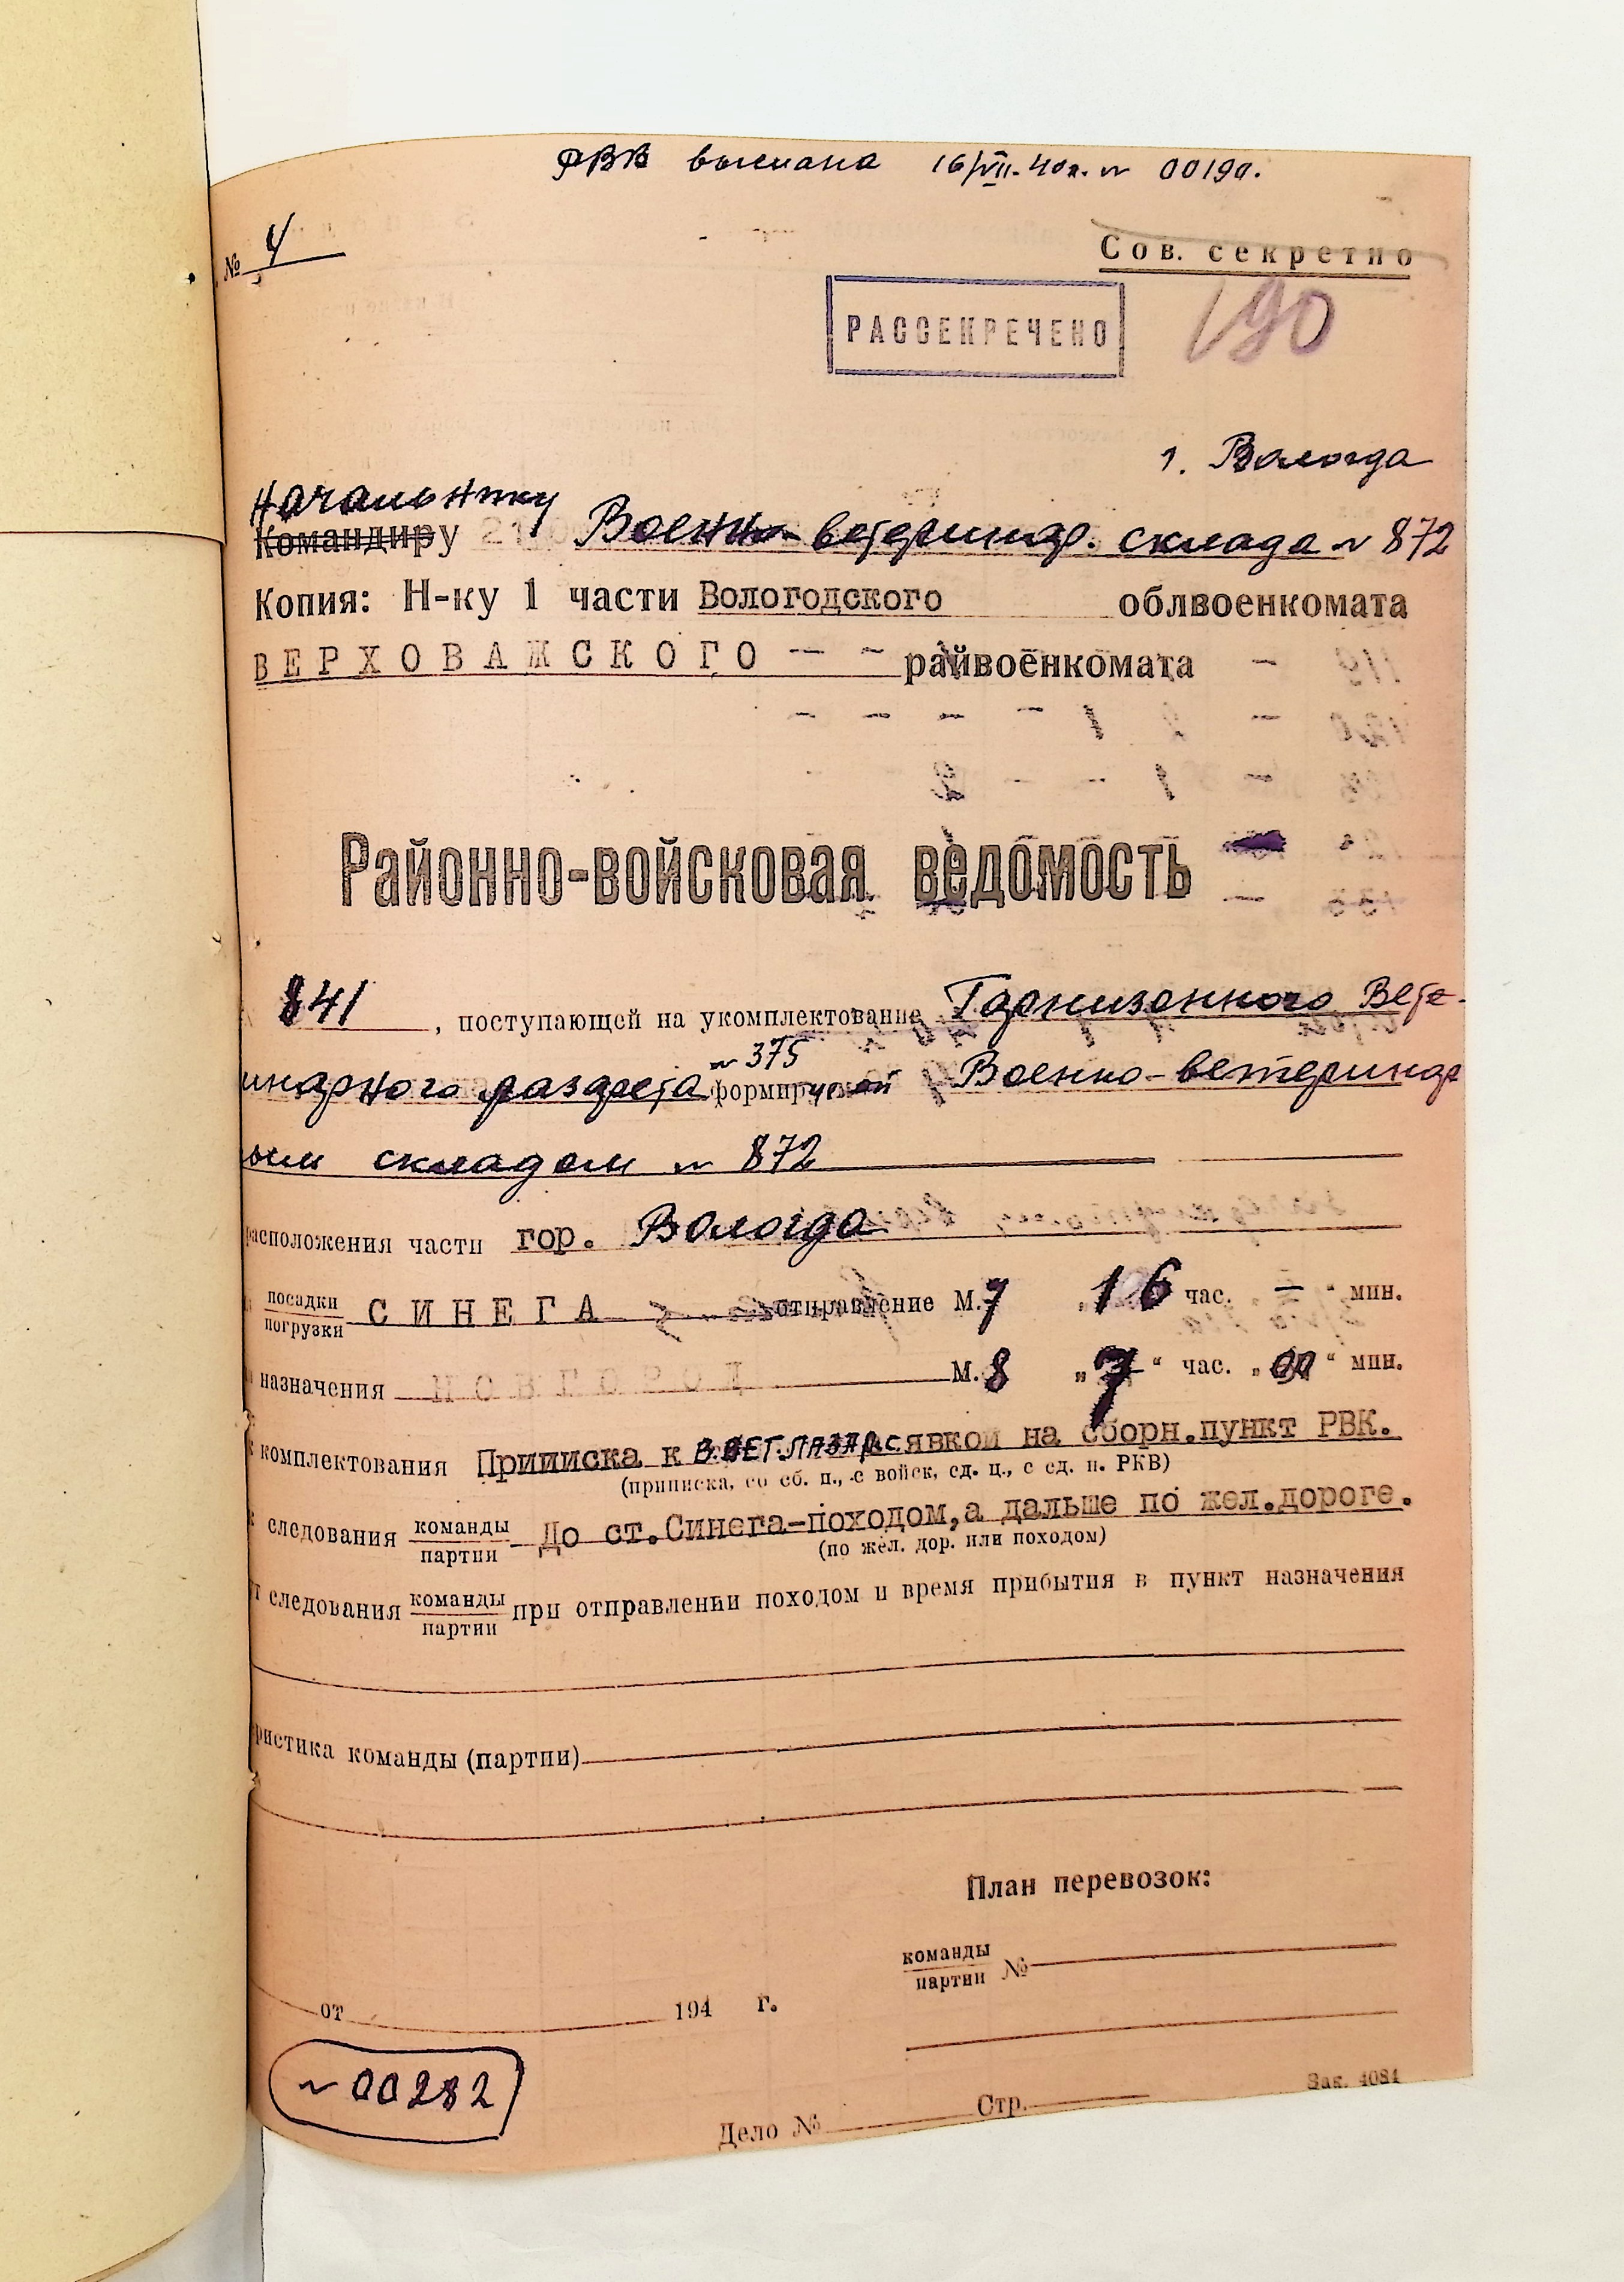 РВВ выслана 16/VII-40г. № 00190.
№ 4
Сов. секретно
РАССЕКРЕЧЕНО
190
г. Вологда
Начальнику
Командиру Военно-ветеринар. склада № 872
Копия: Н-ку 1 части Вологодского облвоенкомата
ВЕРХОВАЖСКОГО — — райвоенкомата
Районно-войсковая ведомость
841, поступающей на укомплектование Гарнизонного Вете-
№ 375
инарного лазарета формируемой Военно-ветеринар
ным складом № 872
расположения части гор. Вологда
посадки
погрузки СИНЕГА отправление М.7 „16 час. — " мин.
назначения НОВГОРОД М.8 „7" час. „00" мин.
комплектования Приписка к В.ВЕТ.ЛАЗАР. с явкой на сборн.пункт РВК.
(приписка, со сб. п., с войск, сд. ц., с сд. п. РКВ)
следования команды
партии До ст.Синега-походом,а дальше по жел.дороге.
(по жел. дор. или походом)
т следования команды
партии при отправлении походом и время прибытия в пункт назначения
ристика команды (партии)
План перевозок:
команды
партии №
от 194 г.
№ 00282
Дело № Стр.
Зак. 4084